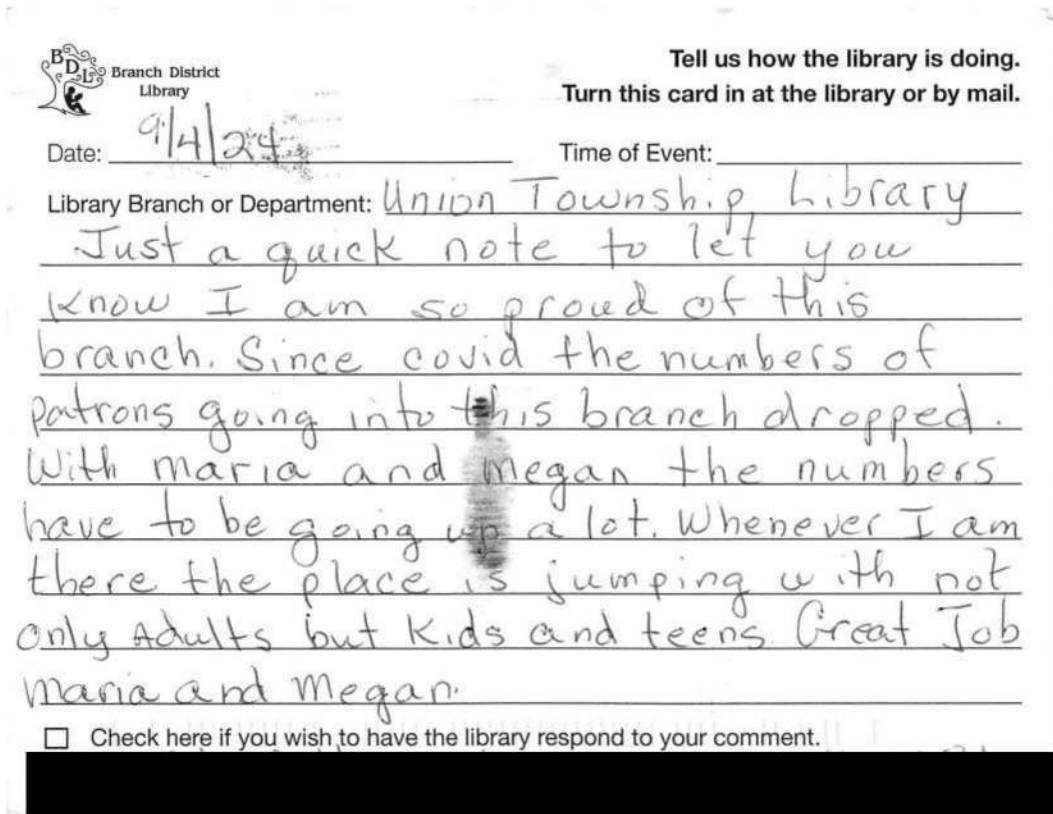 BDL Branch District
Library
Tell us how the library is doing.
Turn this card in at the library or by mail.
Date: 9/4/24 Time of Event:
Library Branch or Department: Union Township Library
Just a quick note to let you
know I am so proud of this
branch. Since covid the numbers of
patrons going into this branch dropped.
With maria and megan the numbers
have to be going up a lot. Whenever I am
there the place is jumping with not
only Adults but Kids and teens. Great Job
maria and megan.
☐ Check here if you wish to have the library respond to your comment.